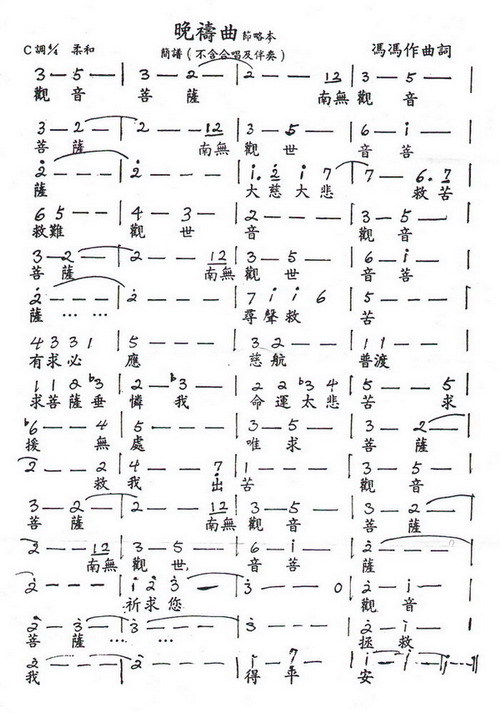 晚禱曲 節略本
C調 4/4 柔和 簡譜（不含合唱及伴奏） 馮馮作曲詞
3 — 5 — | 3 — 2 — | 2 — — 12 | 3 — 5 — |
觀 音 菩 薩 南無 觀 音
3 — 2 — | 2 — — 12 | 3 — 5 — | 6 — i — |
菩 薩 南無 觀 世 音 菩
2̇ — — — | 2̇ — — — | i. 2̇ i 7 | 7 — 6. 7 |
薩 大 慈 大 悲 救 苦
6 5 — — | 4 — 3 — | 2 — — — | 3 — 5 — |
救 難 觀 世 音 觀 音
3 — 2 — | 2 — — 12 | 3 — 5 — | 6 — i — |
菩 薩 南無 觀 世 音 菩
2̇ — — — | 2̇ — — — | 7 i i 6 | 5 — — — |
薩 … … 尋 聲 救 苦
4 3 3 1 | 5 — — — | 3 2 — — | 1 — — — |
有 求 必 應 慈 航 普渡
1 1 2 ♭3 | 2 — ♭3 — | 2 2 ♭3 4 | 5 — — 5 |
求 菩 薩 垂 憐 我 命 運 太 悲 苦 求
♭6 — — 4 | 5 — — — | 3 — 5 — | 3 — 2 — |
援 無 處 唯 求 菩 薩
2 — — 2 | 4 — — 7̣ | 1 — — — | 3 — 5 — |
救 我 出 苦 觀 音
3 — 2 — | 2 — — 12 | 3 — 5 — | 3 — 2 — |
菩 薩 南無 觀 音 菩 薩
2 — — 12 | 3 — 5 — | 6 — i — | 2̇ — — — |
南無 觀 世 音 菩 薩
2̇ — — — | i 2̇ 3̇ — | 3̇ — — 0 | 2̇ — i — |
祈 求 您 觀 音
2̇ — 3̇ — | 3̇ — — — | 3̇ — — — | 2̇ — i — |
菩 薩 … … 拯 救
2̇ — — — | 2̇ — — — | i — 7 — | i — i — i ‖
我 得 平 安